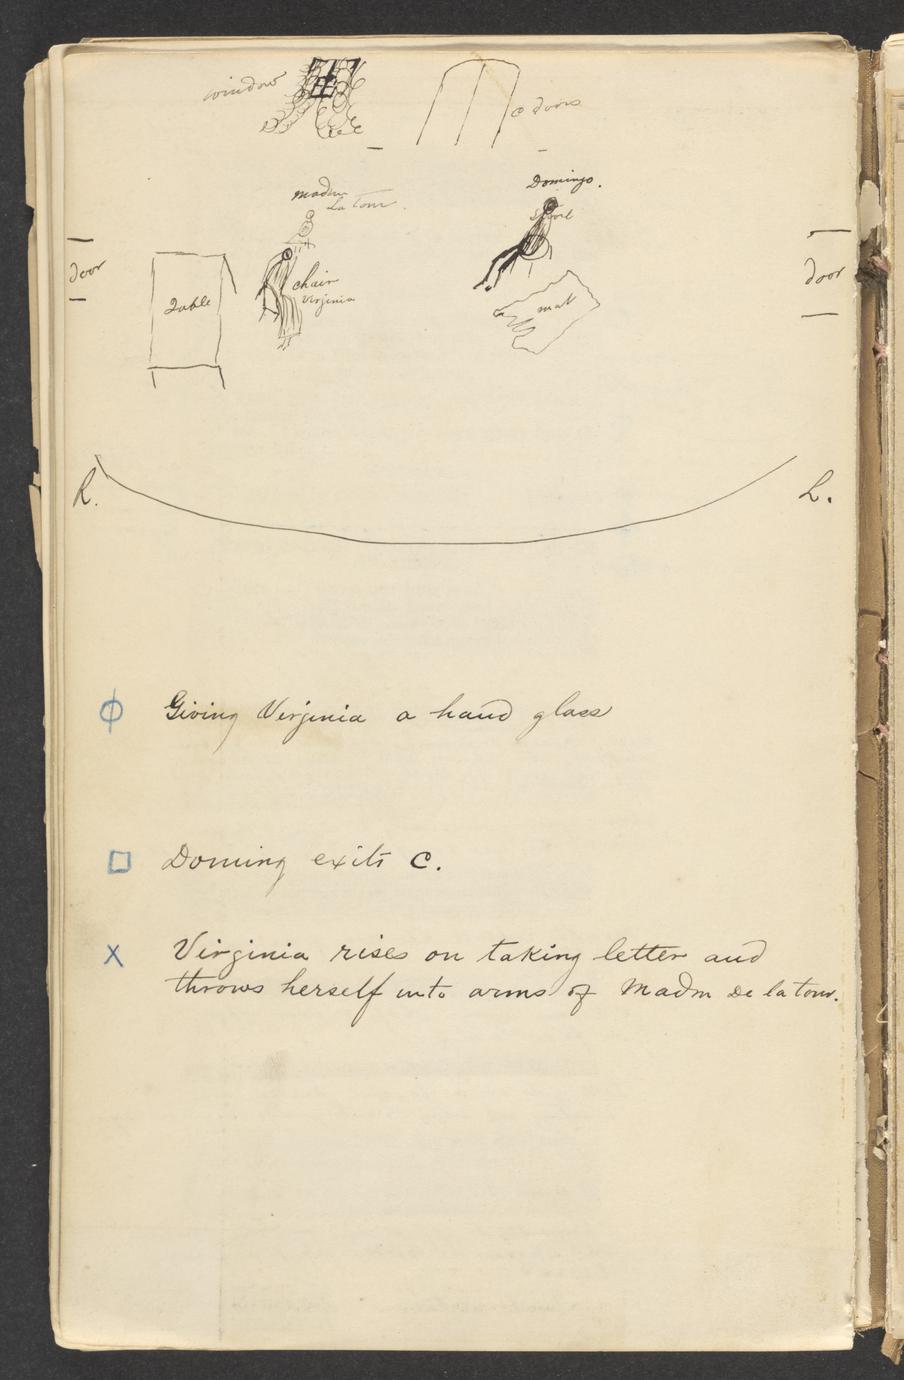 window
c doors
Madm
La Tour.
Domingo.
stool
door
table
chair
Virginia
mat
door
R.
L.
Giving Virginia a hand glass
Doming exits C.
X Virginia rises on taking letter and
throws herself into arms of Madm De la tour.